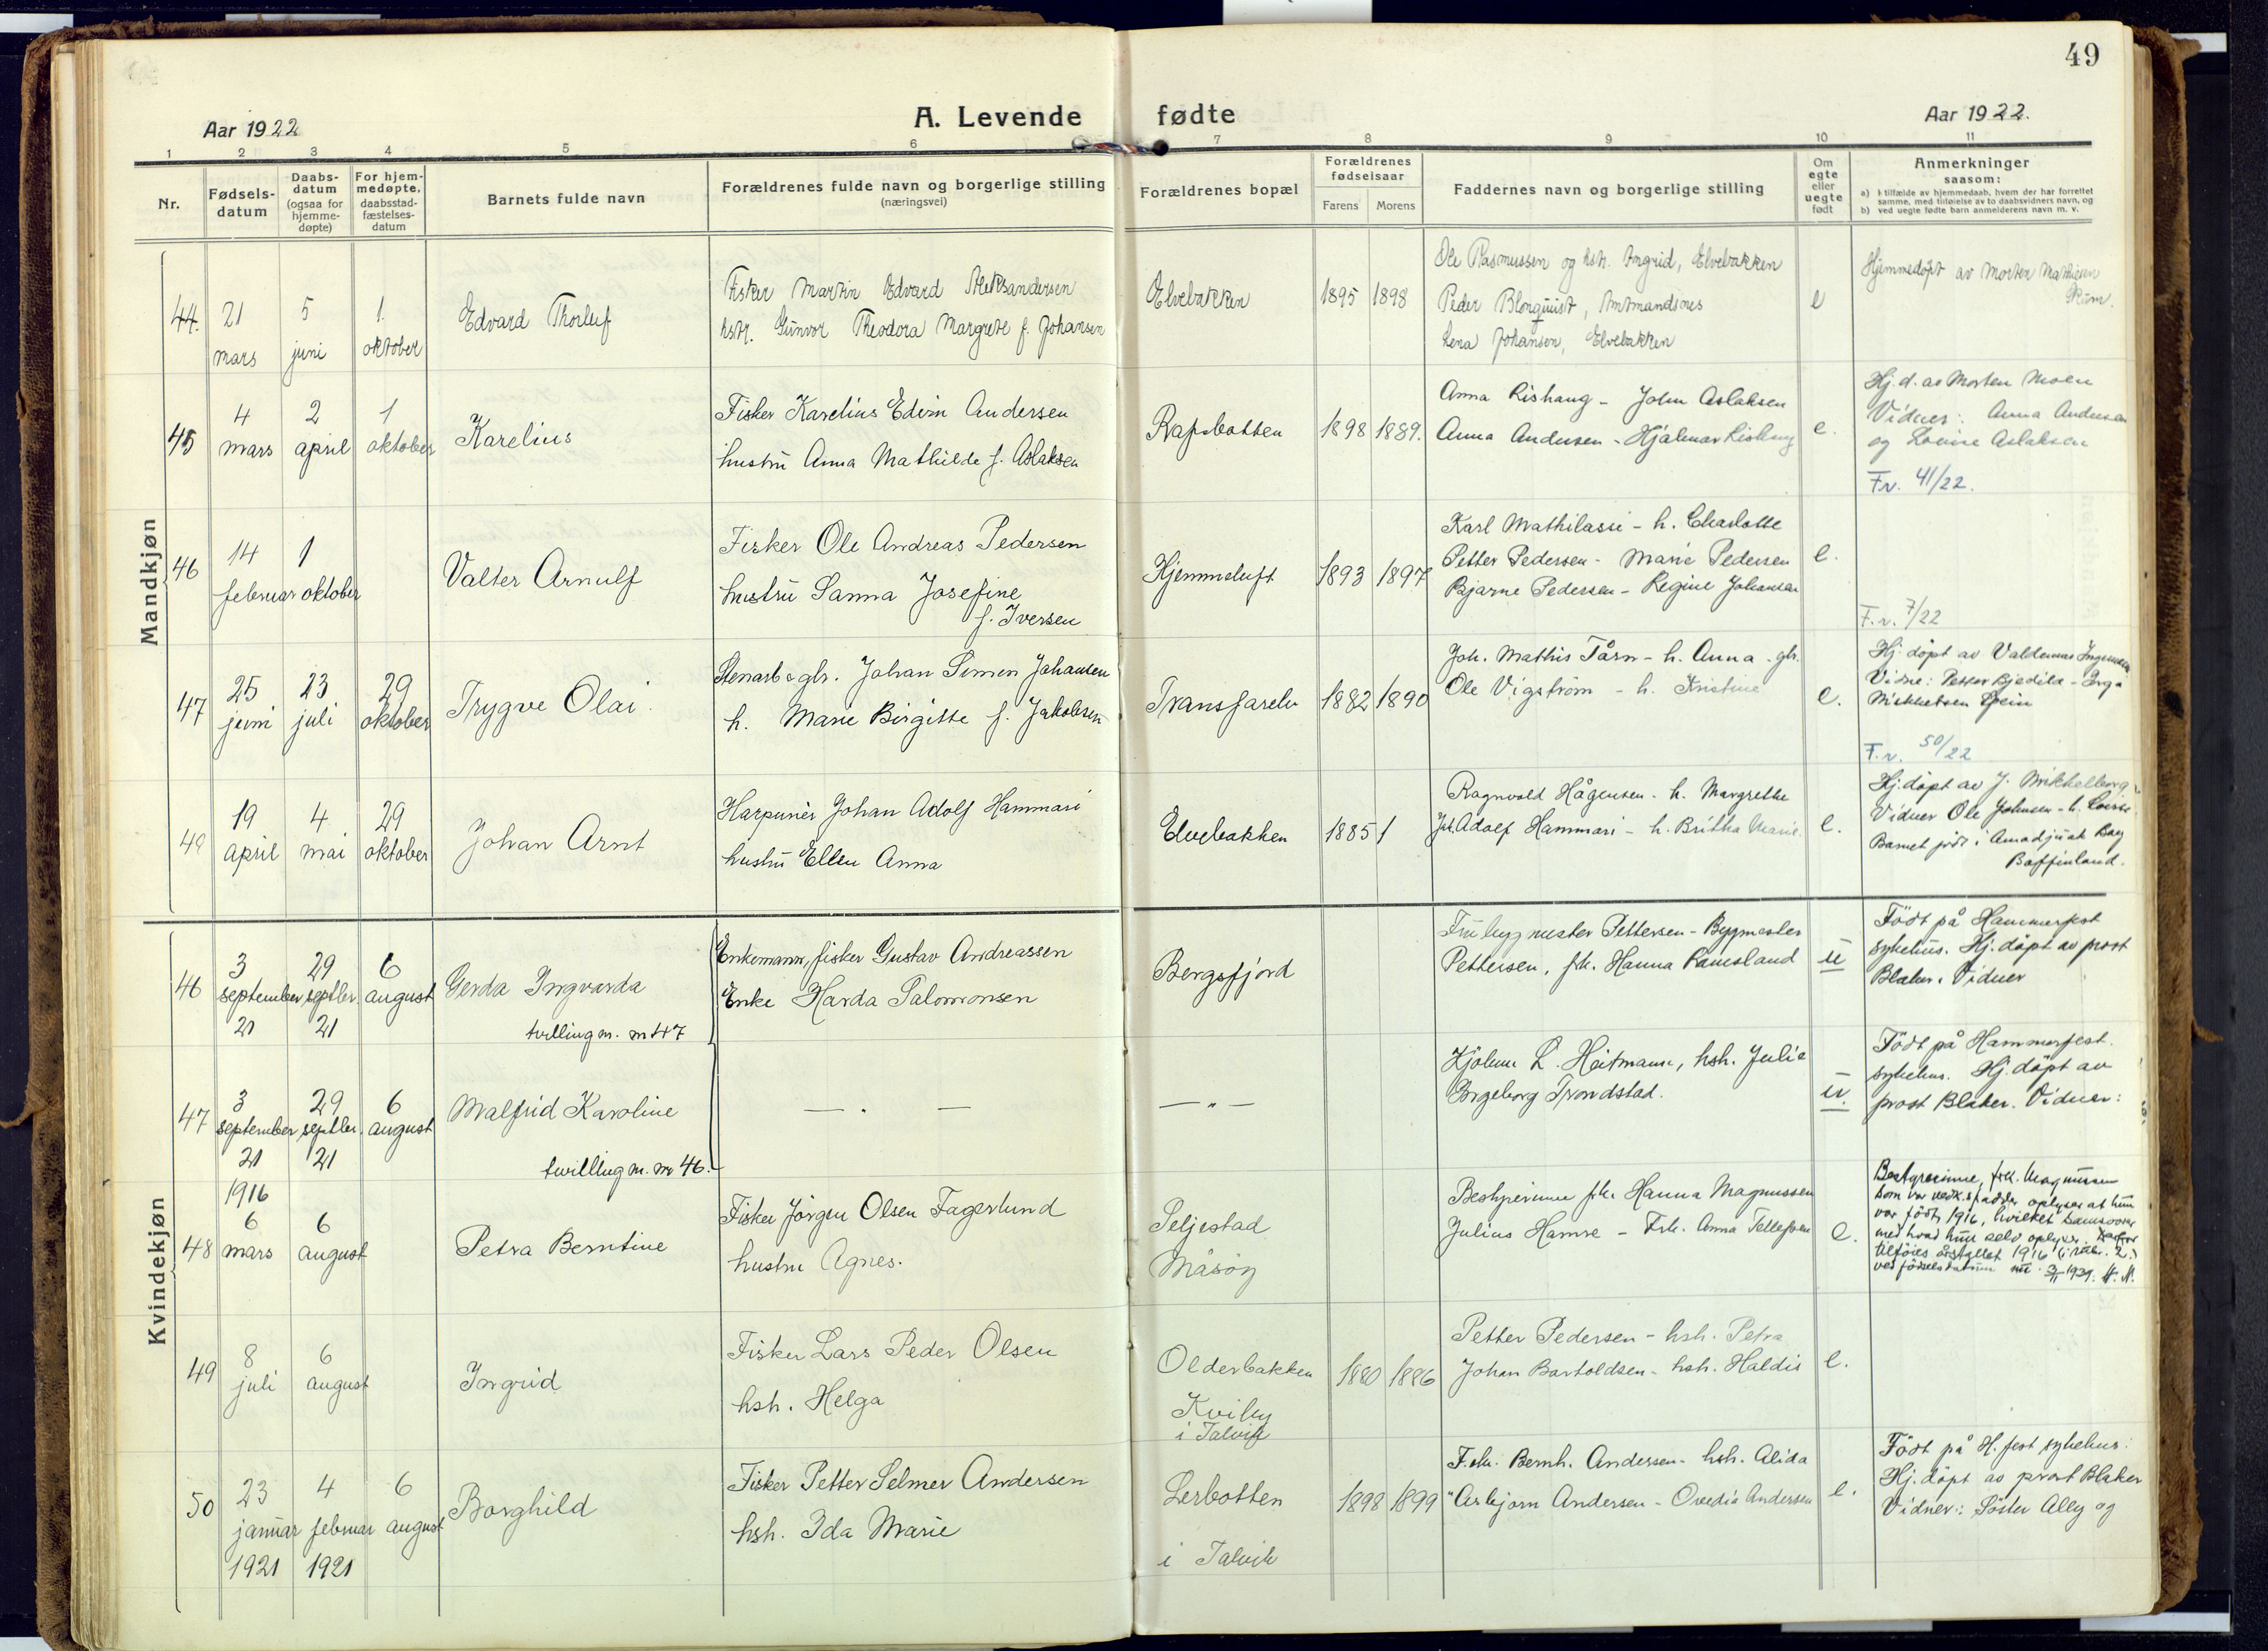 49
Aar 1922
A. Levende fødte
Aar 1922.
1 2 3 4 5 6 7 8 9 10 11
Nr.
Fødsels-
datum
Daabs-
datum
(ogsaa for
hjemme-
døpte)
For hjem-
medøpte,
daabsstad-
fæstelses-
datum
Barnets fulde navn
Forældrenes fulde navn og borgerlige stilling
(næringsvei)
Forældrenes bopæl
Forældrenes
fødselsaar
Farens Morens
Faddernes navn og borgerlige stilling
Om
egte
eller
uegte
født
Anmerkninger
saasom:
a) i tilfælde av hjemmedaab, hvem der har forrettet
samme, med tilføielse av to daabsvidners navn, og
b) ved uegte fødte barn anmelderens navn m. v.
Mandkjøn
44.
21
mars
5
juni
1.
oktober
Edvard Thorluf
Fisker Martin Edvard Aleksandersen
hstr. Gunvor Theodora Margrete f. Johansen
Elvebakken
1895 1898
Ole Rasmussen og hstr. Ingrid, Elvebakken
Peder Blomquist, Amtmandsnes
Lena Johansen, Elvebakken
e
Hjemmedøpt av Morten Mathisen
45
4
mars
2
april
1
oktober
Karelius
Fisker Karelius Edvin Andersen
hustru Anna Mathilde f. Aslaksen
Rafsbotten
1898 1889.
Anna Lishaug - John Aslaksen
Anna Andersen - Hjalmar Lishaug
e.
Hj. d. av Morten Moen
Vidner: Anna Andersen
og Lovise Aslaksen
F.v. 41/22.
46
14
februar
1
oktober
Valter Arnulf
Fisker Ole Andreas Pedersen
hustru Sanna Josefine
f. Iversen
Hjemmeluft
1893 1897
Karl Mathilassi - h. Charlotte
Petter Pedersen - Marie Pedersen
Bjarne Pedersen - Regine Johansen
e.
F.v. 7/22
47
25
juni
23
juli
29
oktober
Trygve Olai.
Stenarb & gbr. Johan Simon Johansen
h. Marie Birgitte f. Jakobsen
Transfarelv
1882 1890
Joh. Mathis Tårn - h. Anna. gbr.
Ole Vigstrøm - h. Kristine
e.
Hj. døpt av Valdemar Ingebrigtsen
Vidne: Petter Bjedila - Inga
Mikkelsen
F.v. 50/22
48
19
april
4
mai
29
oktober
Johan Arnt
Harpuner Johan Adolf Hammari
hustru Ellen Anna
Elvebakken
1885 1
Ragnvald Hågensen - h. Margrethe
Joh. Adolf Hammari - h. Britha Marie.
e.
Hj. døpt av J. Mikkelborg.
Vidner Ole Johnsen - h. Lovise.
Barnet født i Amadjuak Bay
Baffinland.
Kvindekjøn
46
3
september
21
29
septbr.
21
6
august
Gerda Ingvarda
tvilling m. nr 47
Enkemann, fisker Gustav Andreassen
Enke Harda Salomonsen
Bergsfjord
Fru bygmester Pettersen - Bygmester
Pettersen, frk. Hanna Ramsland
u
Født på Hammerfest
sykehus. Hj. døpt av prost
Blaker. Vidner
47
3
september
21
29
septbr.
21
6
august
Malfrid Karoline
tvilling m. nr 46.
— " —
— " —
Kjøbm L. Heitmann, hsh. Julie
Ingeborg Trondstad.
u.
Født på Hammerfest.
sykehus. Hj. døpt av
prost Blaker. Vidner:
48
1916
6
mars
6
august
Petra Berntine
Fisker Jørgen Olsen Fagerlund
hustru Agnes.
Seljestad
Måsøy
Bestyrerinne frk. Hanna Magnussen
Julius Hamre - Frk. Anna Tellefsen
e.
Bestyrerinne, frk. Magnussen
som var nedk. s fadder oplyser at hun
var født 1916, hvilket samsvarer
med hvad hun selv oplyser. Derfor
tilføies årstallet 1916 (i rubr. 2.)
ved fødselsdatum nu. 3/11 1939. H. N.
49
8
juli
6
august
Ingrid
Fisker Lars Peder Olsen
hsh. Helga
Olderbakken
Kviby
i Talvik
1880 1886
Petter Pedersen - hsh. Petra
Johan Bartoldsen - hsh. Haldis
e.
50
23
januar
1921
4
februar
1921
6
august
Borghild
Fisker Petter Selmer Andersen
hsh. Ida Marie
Lerbotten
i Talvik
1898 1899
F. Bernh. Andersen - hsh. Alida
" Asbjørn Andersen - Ovedia Andersen
e.
Født på H.fest sykehus.
Hj. døpt av prost Blaker
Vidner: Søster Ally og